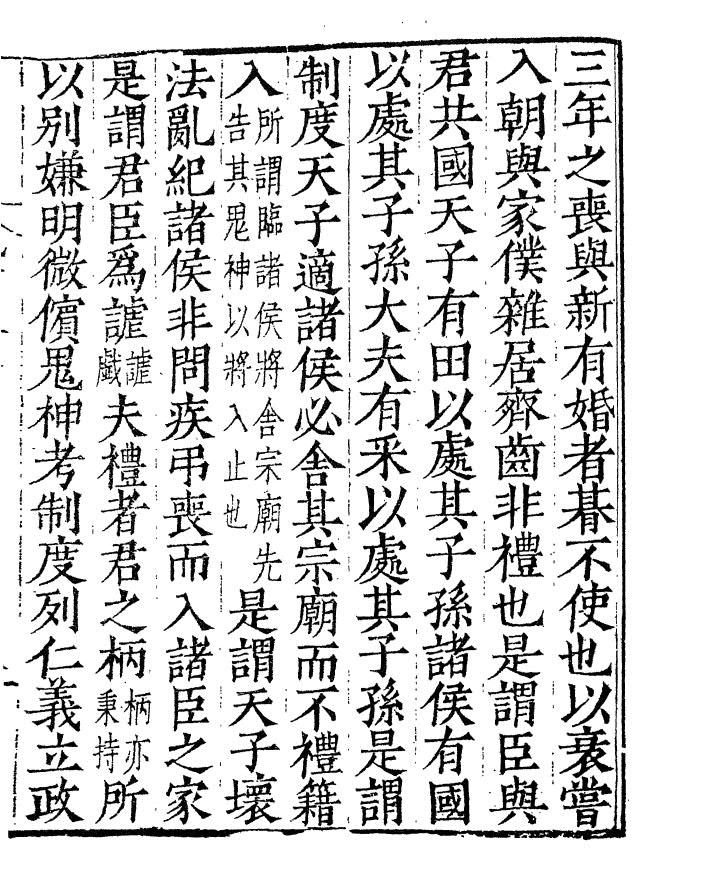 三年之喪與新有婚者朞不使也以衰嘗
入朝與家僕雜居齊齒非禮也是謂臣與
君共國天子有田以處其子孫諸侯有國
以處其子孫大夫有采以處其子孫是謂
制度天子適諸侯必舍其宗廟而不禮籍
入所謂臨諸侯將舍宗廟先告其鬼神以將入止也是謂天子壞
法亂紀諸侯非問疾弔喪而入諸臣之家
是謂君臣爲謔謔戲夫禮者君之柄柄亦秉持所
以別嫌明微儐鬼神考制度列仁義立政